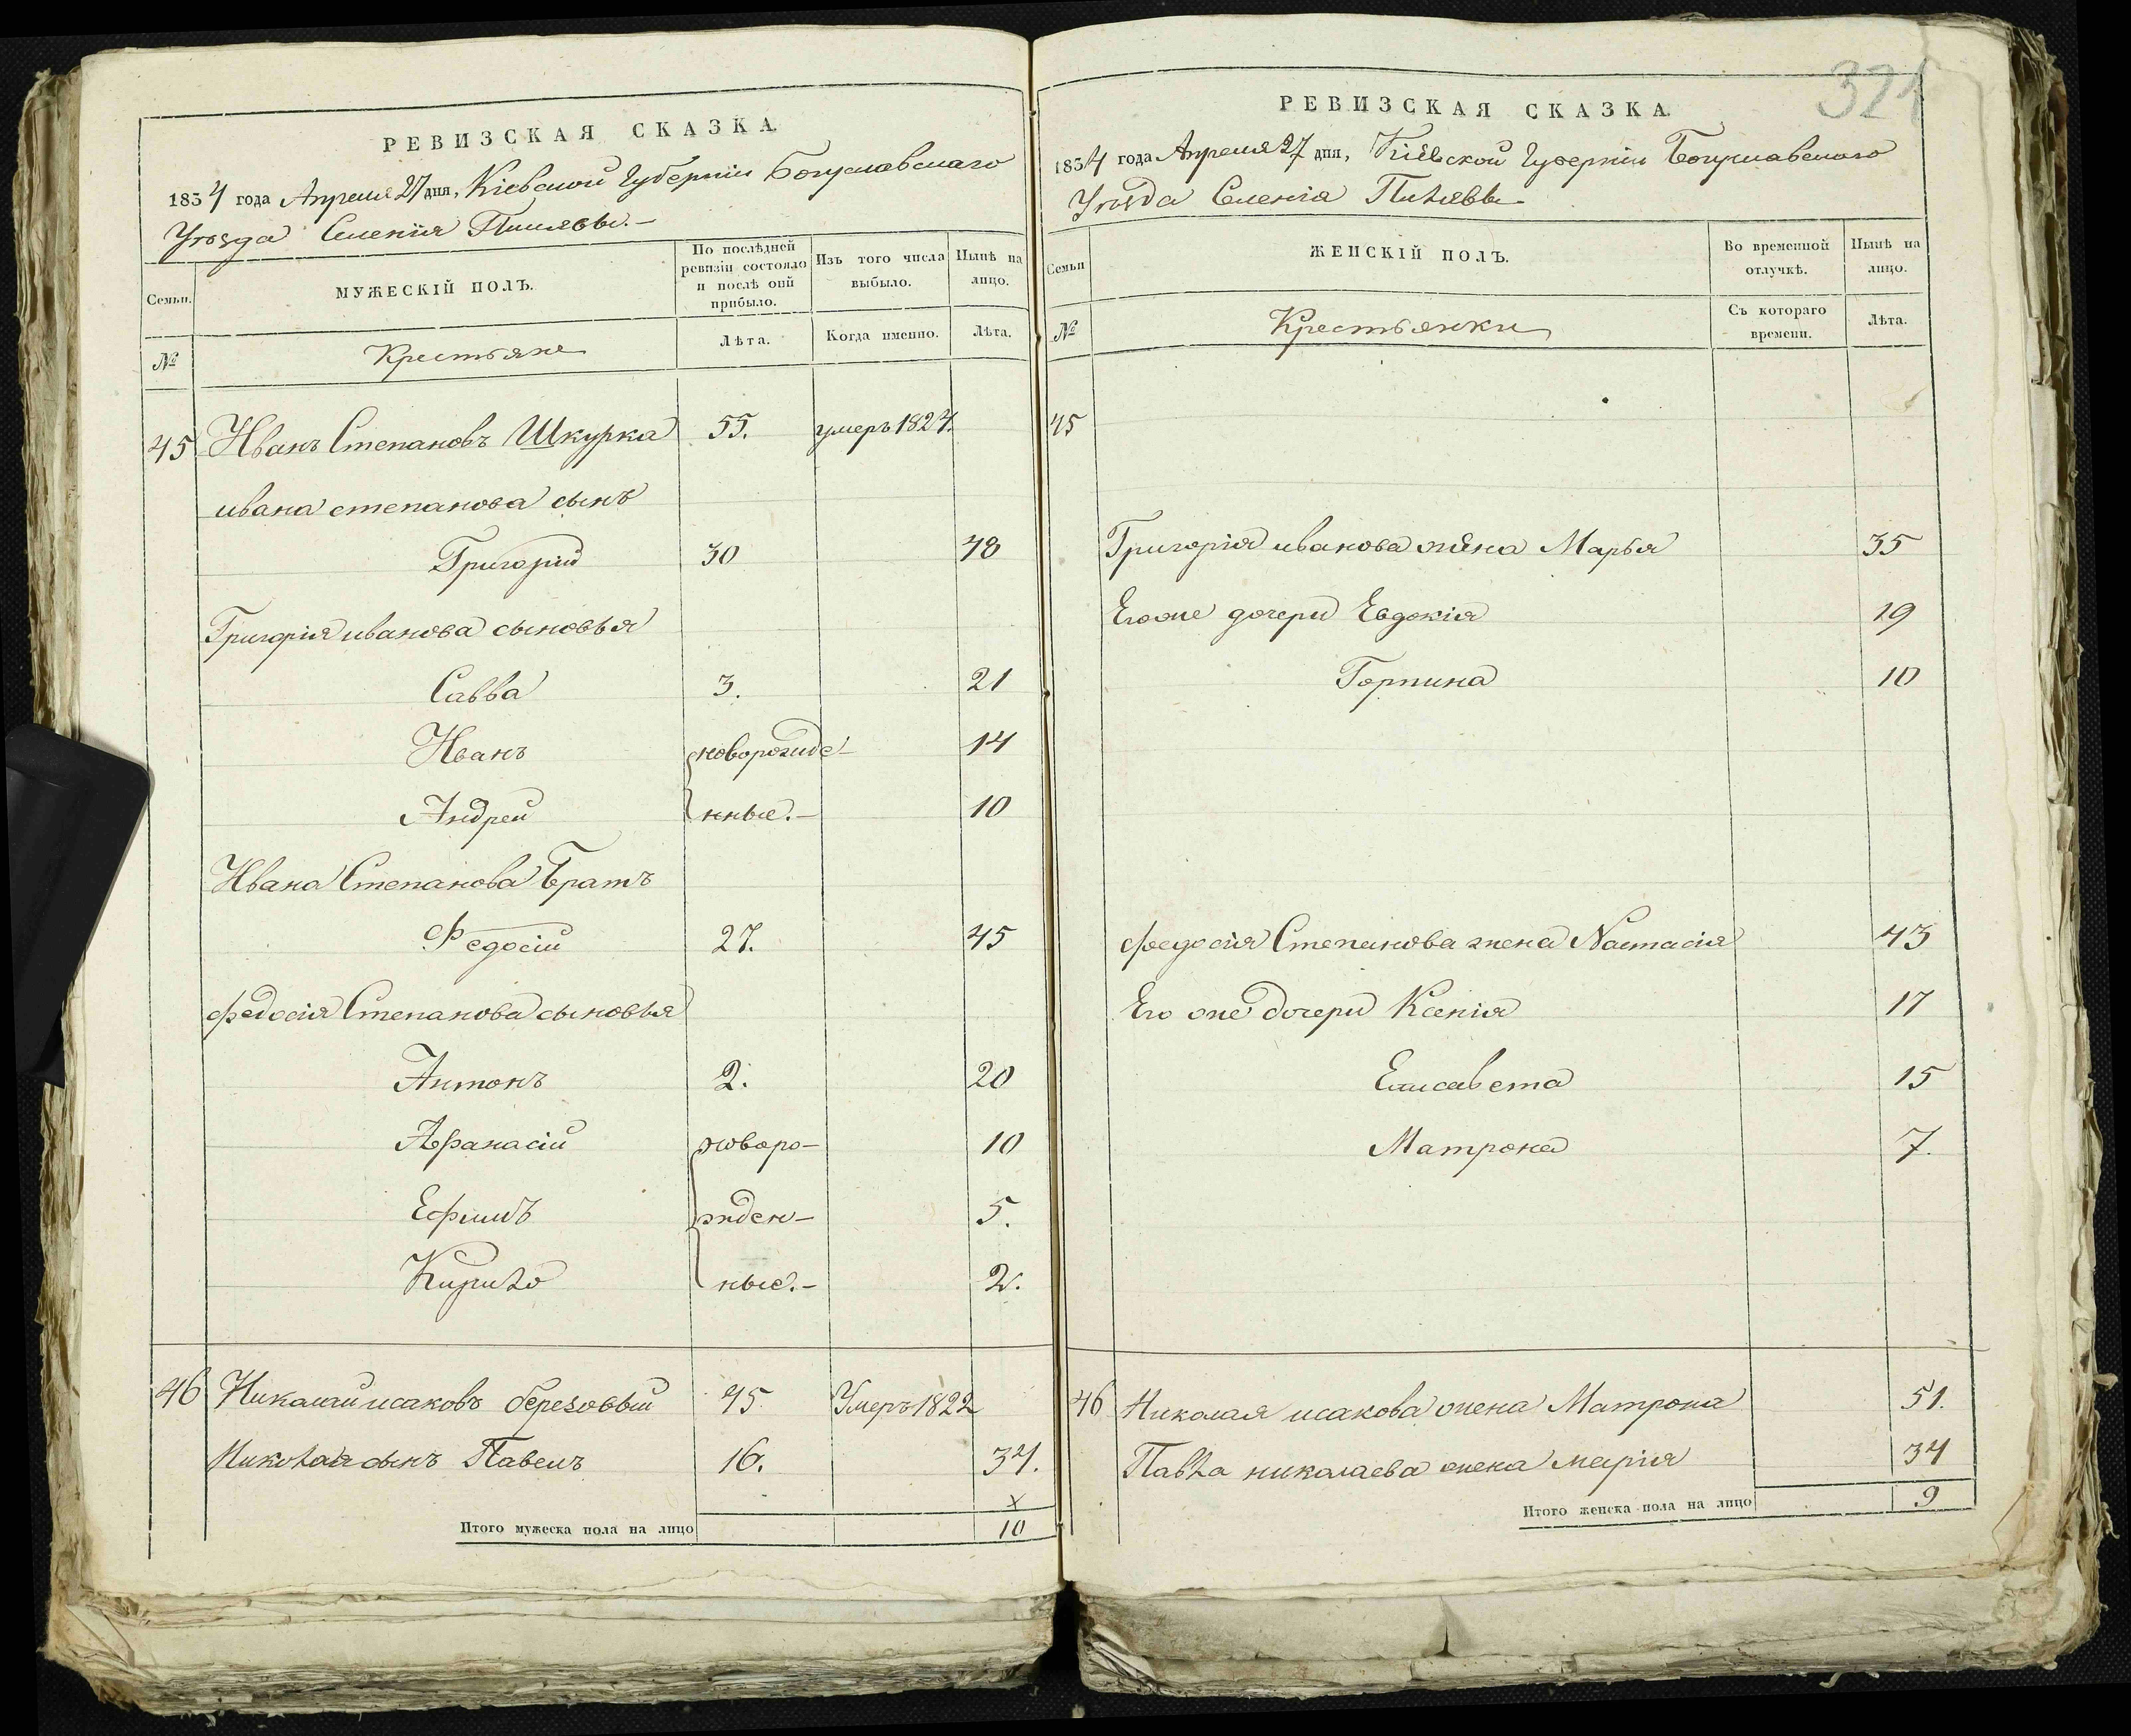 РЕВИЗСКАЯ СКАЗКА
1834 года Апреля 27 дня, Кіевской Губерніи Богуславскаго
Уѣзда Селенія Пилявы.-
Семьи.
МУЖЕСКІЙ ПОЛЪ.
По послѣдней ревизіи состояло и послѣ оній прибыло.
Изъ того числа выбыло.
Нынѣ на лицо.
№
Крестьяне
Лѣта.
Когда именно.
Лѣта.
45 Иванъ Степановъ Шкурка 55. умеръ 1824.
ивана степанова сынъ
Григорій 30 48
Григорія иванова сыновья
Савва 3. 21
Иванъ новорожде- 14
Андрей нные.- 10
Ивана Степанова Братъ
Федосій 27. 45
федосія Степанова сыновья
Антонъ 2. 20
Афанасій новоро- 10
Ефимъ жден- 5.
Кирило ные.- 2.
46 Николай исаковъ березовый 45. Умеръ 1822
Николая сынъ Павелъ 16. 34.
х
Итого мужеска пола на лицо 10
321
РЕВИЗСКАЯ СКАЗКА
1834 года Апреля 27 дня, Кіевской Губерніи Богуславскаго
Уѣзда Селенія Пилявы
Семьи
ЖЕНСКІЙ ПОЛЪ.
Во временной отлучкѣ.
Нынѣ на лицо.
№
Крестьянки
Съ котораго времени.
Лѣта.
45
Григорія иванова жена Марья 35
Егоже дочери Евдокія 19
Горпина 10
федосія Степанова жена Настасія 43
Его же дочери Ксенія 17
Елисавета 15
Матрона 7.
46 Николая исакова жена Матрона 51.
Павла николаева жена марія 34
Итого женска пола на лицо 9